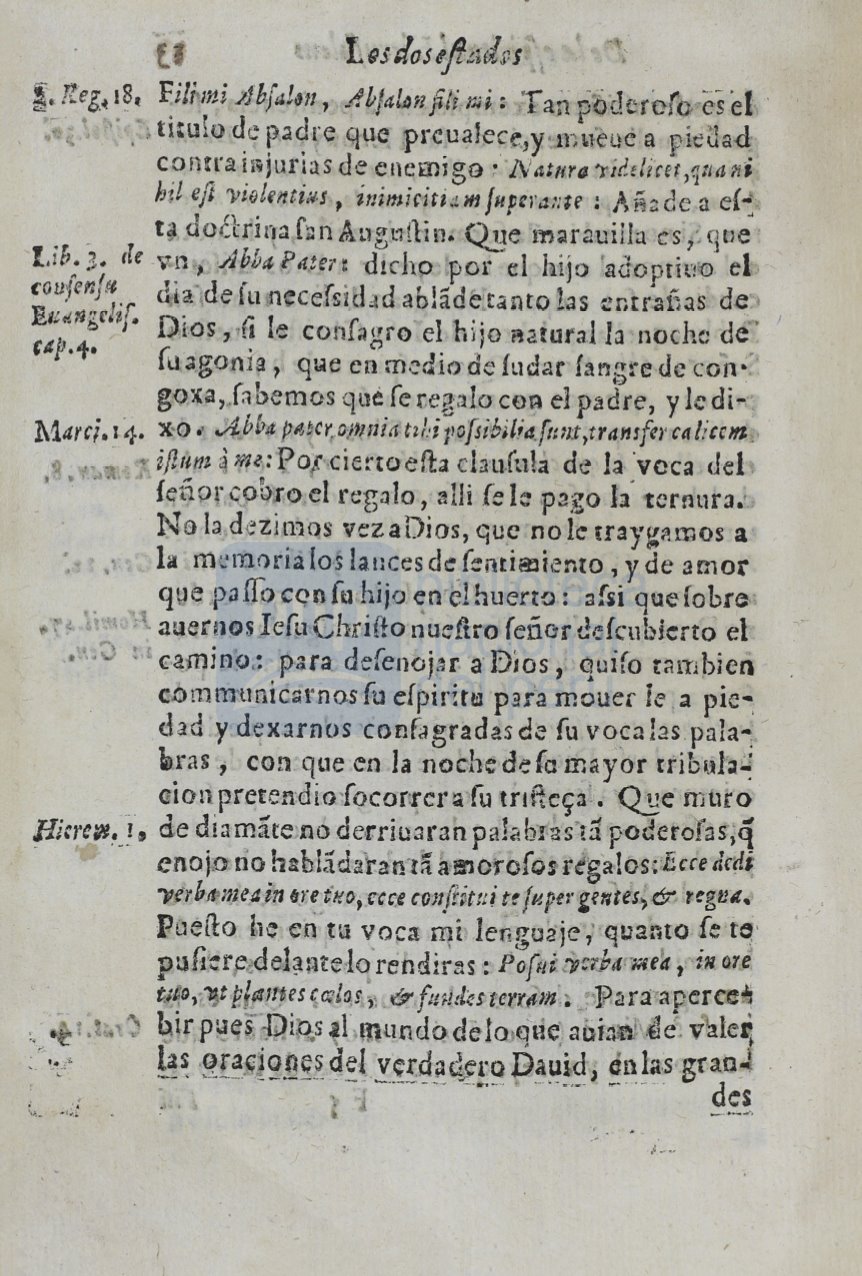 Los dos estados
2. Reg. 18.
Fili mi Absalon, Absalon fili mi: Tan poderoso es el
titulo de padre que preualece, y mueue a piedad
contra injurias de enemigo. Natura videlicet, qua ni
hil est violentius, inimicitiam superante: Añade a es-
ta doctrina san Augustin. Que marauilla es, que
Lib. 3. de
consensu
Euangelis.
cap. 4.
vn, Abba Pater: dicho por el hijo adoptiuo el
dia de su necessidad ablãde tanto las entrañas de
Dios, si le consagro el hijo natural la noche de
su agonia, que en medio de sudar sangre de con-
goxa, sabemos que se regalo con el padre, y le di-
Marci. 14.
xo. Abba pater, omnia tibi possibilia sunt, transfer calicem
istum à me: Por cierto esta clausula de la voca del
señor cobro el regalo, alli se le pago la ternura.
No la dezimos vez a Dios, que no le traygamos a
la memoria los lances de sentimiento, y de amor
que passo con su hijo en el huerto: assi que sobre
auernos Iesu Christo nuestro señor descubierto el
camino: para desenojar a Dios, quiso tambien
communicarnos su espiritu para mouer le a pie-
dad y dexarnos consagradas de su voca las pala-
bras, con que en la noche de su mayor tribula-
cion pretendio socorrer a su tristeça. Que muro
Hierem. 1,
de diamãte no derriuaran palabras tã poderosas, q̃
enojo no hablãdaran tã amorosos regalos: Ecce dedi
verba mea in ore tuo, ecce constitui te super gentes, & regna.
Puesto he en tu voca mi lenguaje, quanto se te
pusiere delante lo rendiras: Posui verba mea, in ore
tuo, vt plantes cœlos, & fundes terram. Para aperce-
bir pues Dios al mundo de lo que auian de valer
las oraciones del verdadero Dauid, en las gran-
des